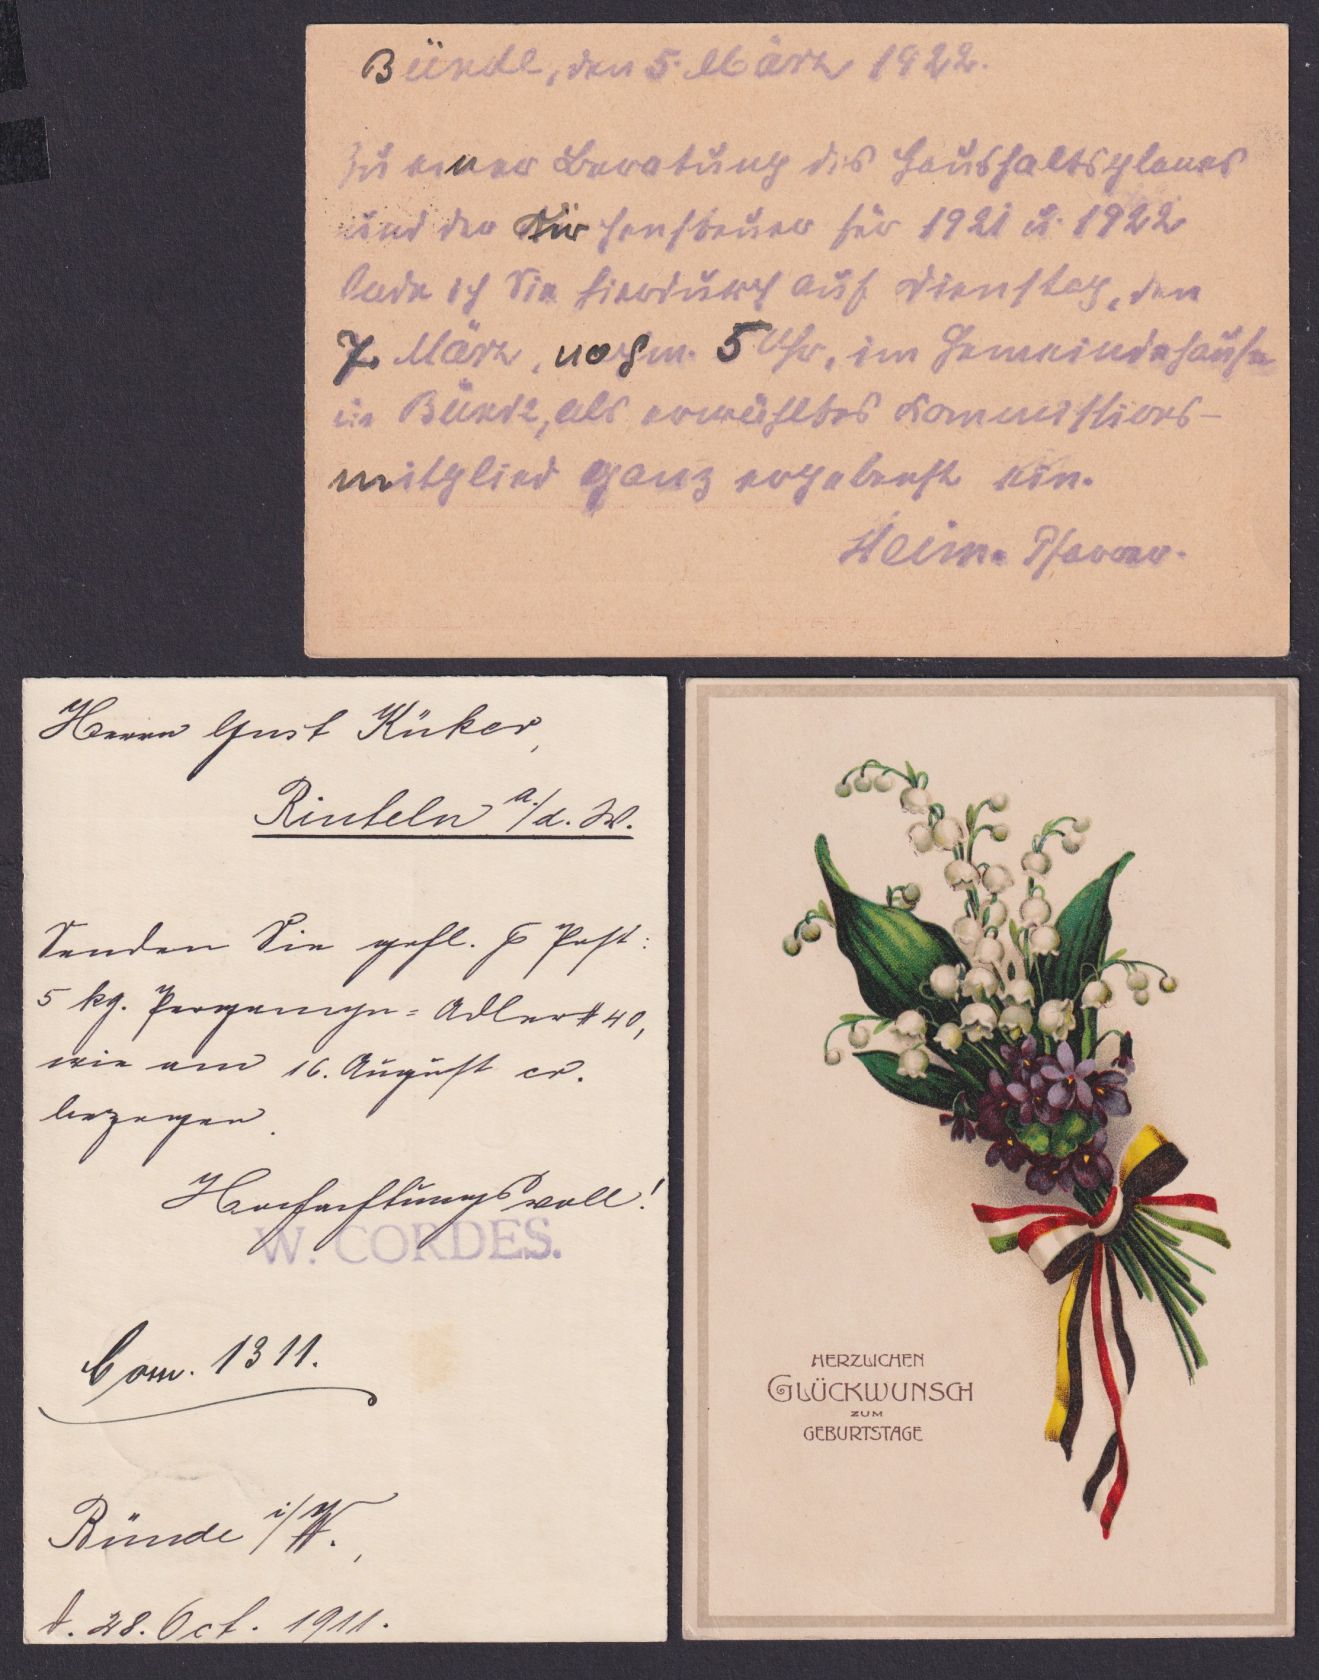 Bünde, den 5. März 1922.
Zu einer Beratung des Haushaltsplanes
und der Kirchensteuer für 1921 u. 1922
lade ich Sie hierdurch auf Dienstag, den
7. März, nachm. 5 Uhr, im Gemeindehause
in Bünde, als erwähltes Kommissions-
mitglied ganz ergebenst ein.
Heim. Pfarrer.
Herrn Gust Küker,
Rinteln a./d. W.
Senden Sie gefl. p Post:
5 kg. Pergamyn-Adler # 40,
wie am 16. August cr.
bezogen.
Hochachtungsvoll!
W. CORDES.
Com. 1311.
Bünde i/W.,
d. 28. Oct. 1911.
HERZLICHEN
GLÜCKWUNSCH
ZUM
GEBURTSTAGE